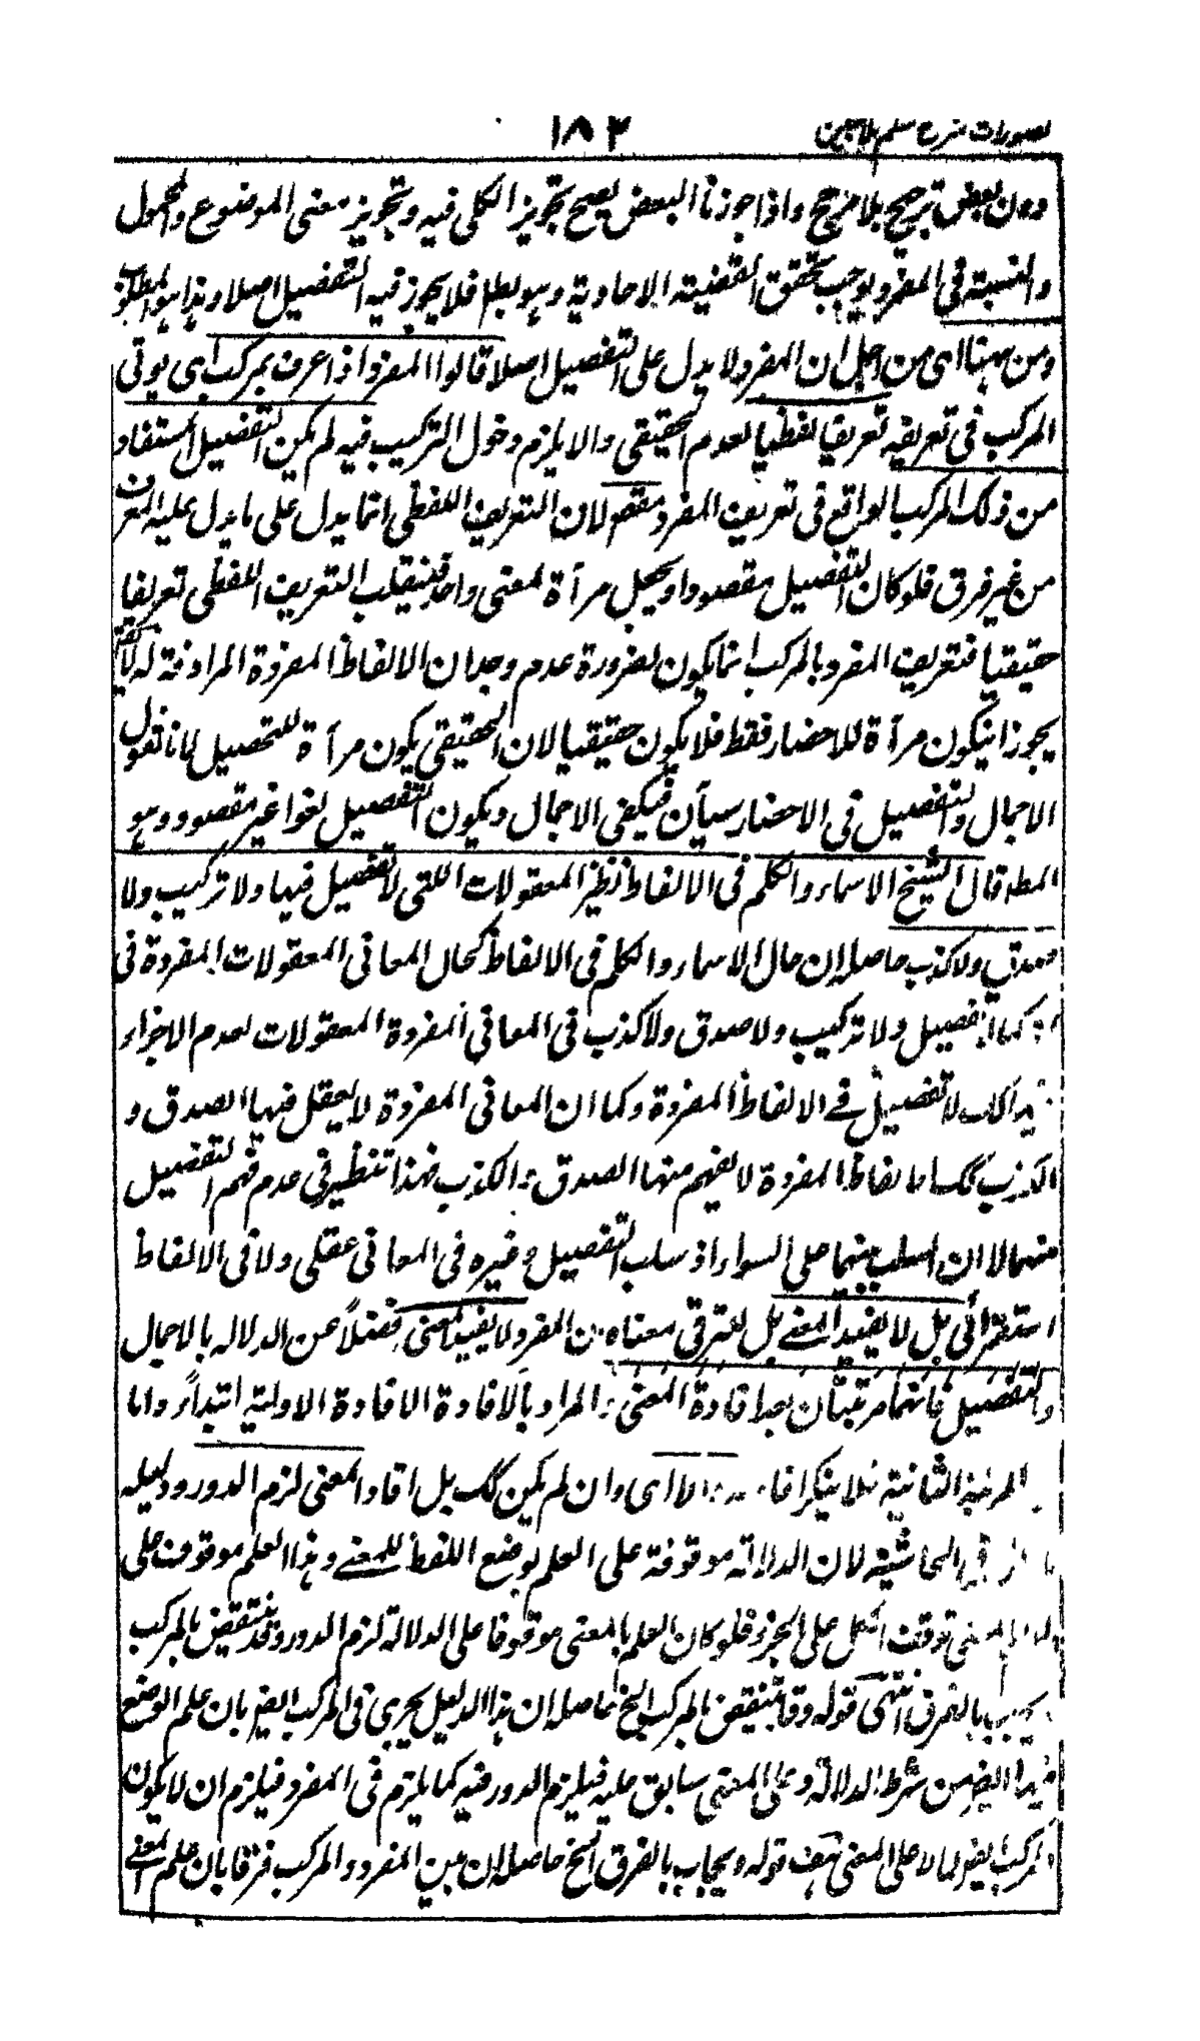 تصورات شرح سلم ملا مبين ١٨٢
دون بعض ترجيح بلا مرجح واذا جوزنا البعض يصح تجويز الكلى فيه وتجويز معنى الموضوع والمحمول
والنسبة فى المفرد يوجب تحقق القضية الاحادية وهو باطل فلا يجوز فيه التفصيل اصلا وهذا هو المطلوب
ومن ههنا اى من اجل ان المفرد لا يدل على التفصيل اصلا قالوا المفرد اذا عرف بمركب اى يوتى
المركب فى تعريفه تعريفا لفظيا لعدم الحقيقى والا يلزم دخول التركيب فيه لم يكن التفصيل المستفاد
من ذلك المركب الواقع فى تعريف المفرد مقصودا لان التعريف اللفظى انما يدل على ما يدل عليه المعرف
من غير فرق فلو كان التفصيل مقصودا ويجعل مرأة لمعنى واحد فينقلب التعريف اللفظى تعريفا
حقيقيا فتعريف المفرد بالمركب انما يكون لضرورة عدم وجدان الالفاظ المفردة المرادفة له
يجوز ان يكون مرأة للاحضار فقط فلا يكون حقيقيا لان الحقيقى يكون مرأة للتحصيل لانا نقول
الاجمال والتفصيل فى الاحضار سيان فيكفى الاجمال ويكون التفصيل لغوا غير مقصود وهو
المط قال الشيخ الاسماء والكلم فى الالفاظ نظير المعقولات اللتى لا تفصيل فيها ولا تركيب ولا
صدق ولا كذب حاصله ان حال الاسماء والكلم فى الالفاظ كحال المعانى المعقولات المفردة فى
كما لا تفصيل ولا تركيب ولا صدق ولا كذب فى المعانى المفردة المعقولات لعدم الاجزاء
لا تفصيل فى الالفاظ المفردة وكما ان المعانى المفردة لا يعقل فيها الصدق و
الكذب كك الالفاظ المفردة لا يفهم منها الصدق والكذب فهذا تنظير فى عدم فهم التفصيل
منهما لا ان السلب بينهما على السواء اذ سلب التفصيل وغيره فى المعانى عقلى ولا فى الالفاظ
استقرائى بل لا يفيد المعنى بل للترقى معناه ان المفرد لا يفيد المعنى فضلاً عن الدلالة بالاجمال
والتفصيل فانهما مرتبتان بعد افادة المعنى والمراد بالافادة الافادة الاولية ابتداءً واما
المرتبة الثانية فلا ينكر والا اى وان لم يكن كك بل افاد المعنى لزم الدور ودليله
فى الحاشية لان الدلالة موقوفة على العلم بوضع اللفظ للمعنى وهذا العلم موقوف على
المعنى توقف الكل على الجزء فلو كان العلم بالمعنى موقوفا على الدلالة لزم الدور وقد ينتقض بالمركب
يجيب بالفرق انتهى قوله وقد ينتقض بالمركب الخ حاصله ان هذا الدليل يجرى فى المركب ايضا بان علم الوضع
ايضا من شرط الدلالة وعلى المعنى سابق عليه فيلزم الدور فيه كما يلزم فى المفرد فيلزم ان لا يكون
المركب ايضا دالا على المعنى هف قوله ويجاب بالفرق الخ حاصله ان بين المفرد والمركب فرقا بان علم المعنى